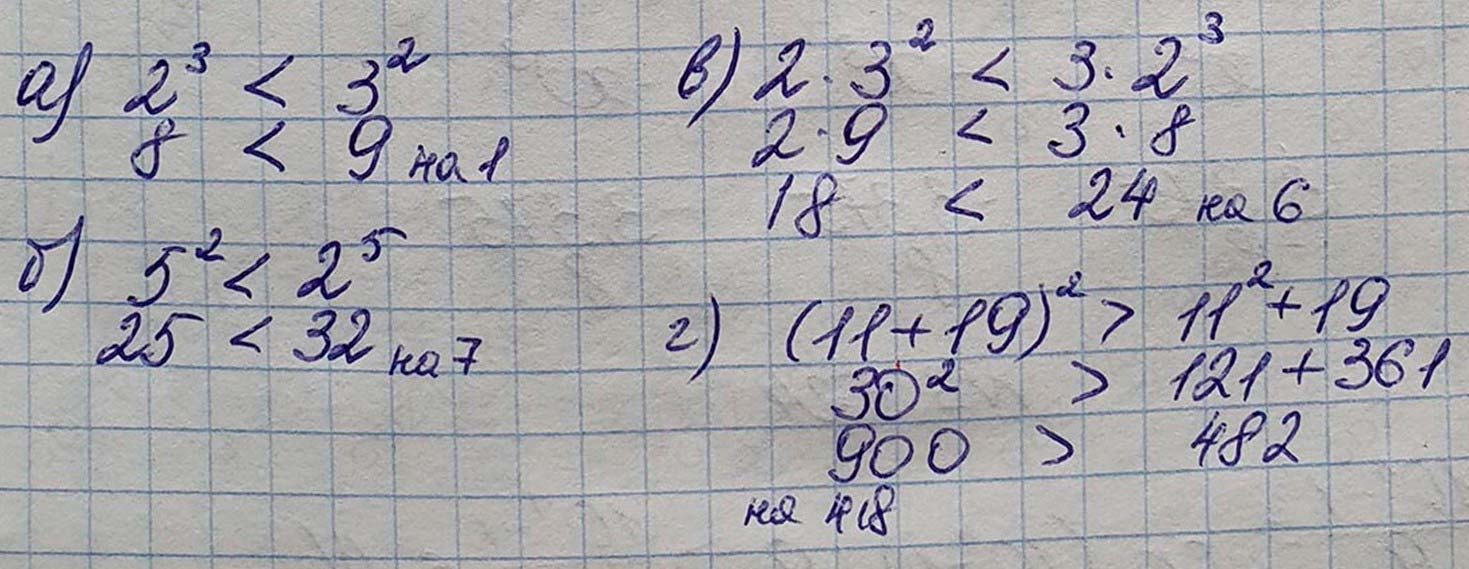 а) 2³ < 3²
8 < 9 на 1
б) 5² < 2⁵
25 < 32 на 7
в) 2 · 3² < 3 · 2³
2 · 9 < 3 · 8
18 < 24 на 6
г) (11 + 19)² > 11² + 19
30² > 121 + 361
900 > 482
на 418